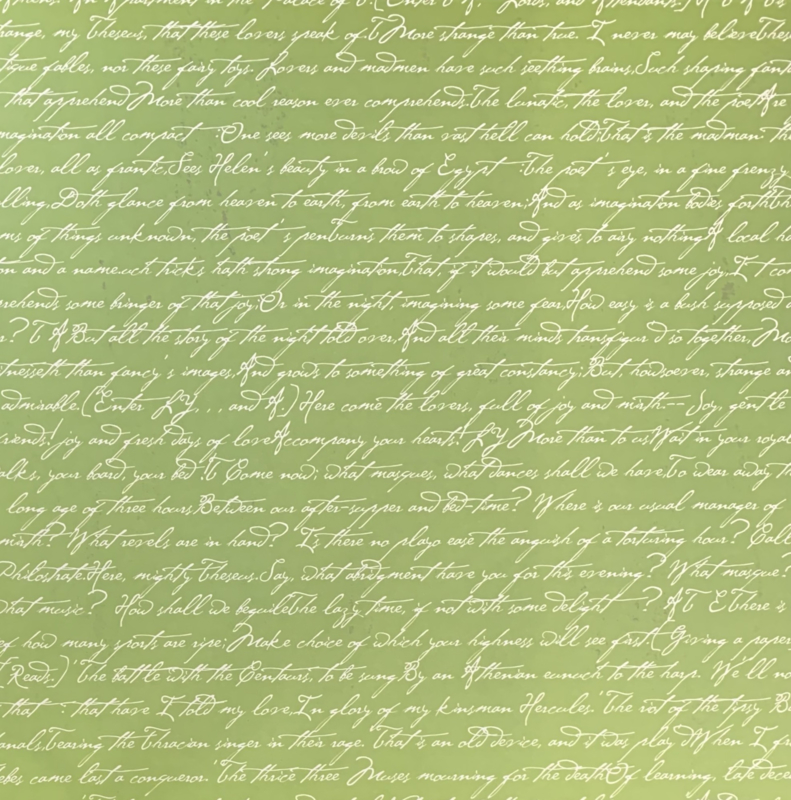 An Apartment in the Palace of T. (Enter T, Lords, and Attendants.)
range, my Theseus, that these lovers speak of. T More strange than true. I never may believe These
tique fables, nor these fairy toys. Lovers and madmen have such seething brains, Such shaping fant
that apprehend More than cool reason ever comprehends. The lunatic, the lover, and the poet Are
magination all compact : One sees more devils than vast hell can hold; That is the madman: th
lover, all as frantic, Sees Helen's beauty in a brow of Egypt : The poet 's eye, in a fine frenzy
lling, Doth glance from heaven to earth, from earth to heaven; And as imagination bodies forth th
ms of things unknown, the poet 's pen turns them to shapes, and gives to airy nothing A local ha
on and a name. uch tricks hath strong imagination, That, if it would but apprehend some joy, I t co
prehends some bringer of that joy; Or in the night, imagining some fear, How easy is a bush supposed a
r? T A But all the story of the night told over, And all their minds transfigur d so together, Mo
tnesseth than fancy's images, And grows to something of great constancy; But howsoever, strange an
admirable. (Enter L y. , . and A.) Here come the lovers, full of joy and mirth.— Joy, gentle
riends! joy and fresh days of love Accompany your hearts! L Y More than to us Wait in your royal
alks, your board, your bed! T Come now; what masques, what dances shall we have, To wear away th
long age of three hours Between our after-supper and bed-time? Where is our usual manager of
mirth? What revels are in hand? Is there no play, o ease the anguish of a torturing hour? Call
Philostrate. Here, mighty Theseus. Say, what abridgment have you for this evening? What masque?
what music? How shall we beguile The lazy time, if not with some delight ? A T E There is
ef how many sports are ripe; Make choice of which your highness will see first. Giving a paper
(Reads.) 'The battle with the Centaurs, to be sung By an Athenian eunuch to the harp. We'll no
that : that have I told my love, In glory of my kinsman Hercules. 'The riot of the tipsy Ba
anals, Tearing the Thracian singer in their rage. That is an old device, and it was play d When I fr
ebes came last a conqueror. 'The thrice three Muses mourning for the death Of learning, late dece